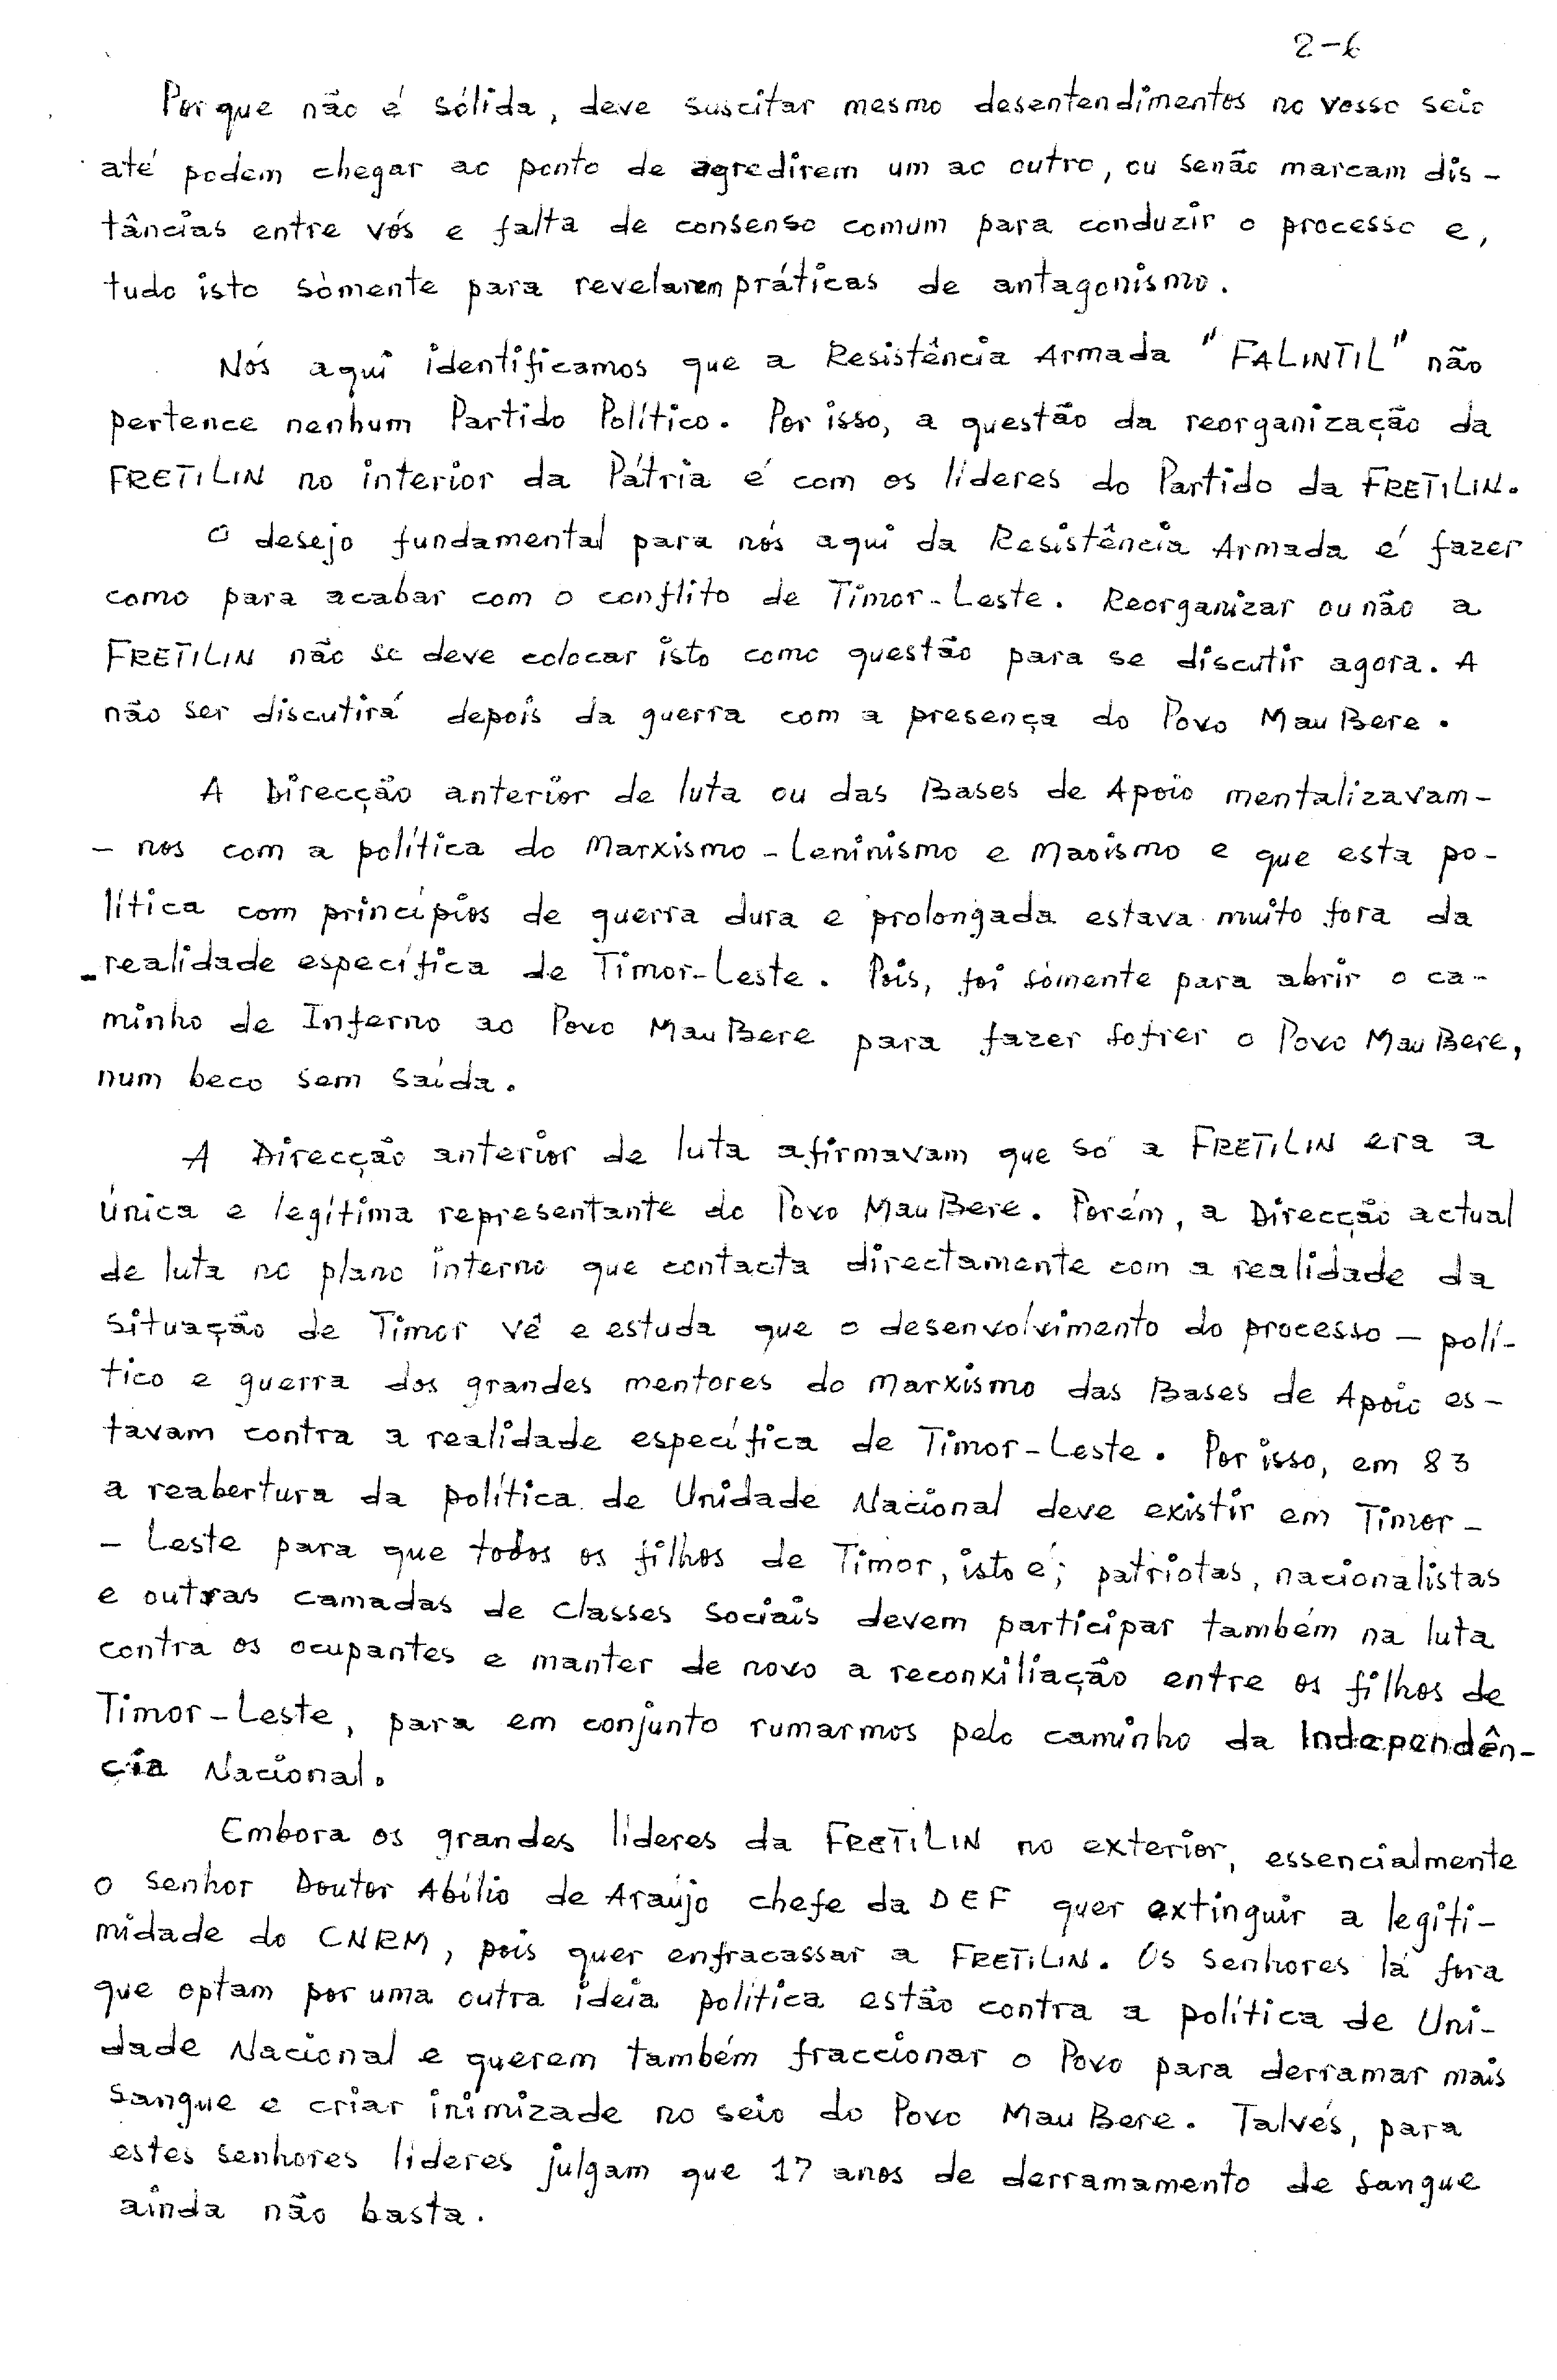 2-6
Porque não é sólida, deve suscitar mesmo desentendimentos no vosso seio
até podem chegar ao ponto de agredirem um ao outro, ou senão marcam dis-
tâncias entre vós e falta de consenso comum para conduzir o processo e,
tudo isto sòmente para revelarem práticas de antagonismo.
Nós aqui identificamos que a Resistência Armada "FALINTIL" não
pertence nenhum Partido Político. Por isso, a questão da reorganização da
FRETILIN no interior da Pátria é com os líderes do Partido da FRETILIN.
O desejo fundamental para nós aqui da Resistência Armada é fazer
como para acabar com o conflito de Timor-Leste. Reorganizar ou não a
FRETILIN não se deve colocar isto como questão para se discutir agora. A
não ser discutirá depois da guerra com a presença do Povo MauBere.
A Direcção anterior de luta ou das Bases de Apoio mentalizavam-
-nos com a política do Marxismo-Leninismo e Maoismo e que esta po-
lítica com princípios de guerra dura e prolongada estava muito fora da
realidade específica de Timor-Leste. Pois, foi sòmente para abrir o ca-
minho de Inferno ao Povo MauBere para fazer sofrer o Povo MauBere,
num beco sem saída.
A Direcção anterior de luta afirmavam que só a FRETILIN era a
única e legítima representante do Povo MauBere. Porém, a Direcção actual
de luta no plano interno que contacta directamente com a realidade da
situação de Timor vê e estuda que o desenvolvimento do processo - polí-
tico e guerra dos grandes mentores do Marxismo das Bases de Apoio es-
tavam contra a realidade específica de Timor-Leste. Por isso, em 83
a reabertura da política de Unidade Nacional deve existir em Timor-
-Leste para que todos os filhos de Timor, isto é; patriotas, nacionalistas
e outras camadas de classes sociais devem participar também na luta
contra os ocupantes e manter de novo a reconxiliação entre os filhos de
Timor-Leste, para em conjunto rumarmos pelo caminho da Independên-
cia Nacional.
Embora os grandes líderes da FRETILIN no exterior, essencialmente
o senhor Doutor Abílio de Araújo chefe da DEF quer extinguir a legiti-
midade do CNRM, pois quer enfracassar a FRETILIN. Os senhores lá fora
que optam por uma outra ideia política estão contra a política de Uni-
dade Nacional e querem também fraccionar o Povo para derramar mais
sangue e criar inimizade no seio do Povo MauBere. Talvés, para
estes senhores líderes julgam que 17 anos de derramamento de sangue
ainda não basta.